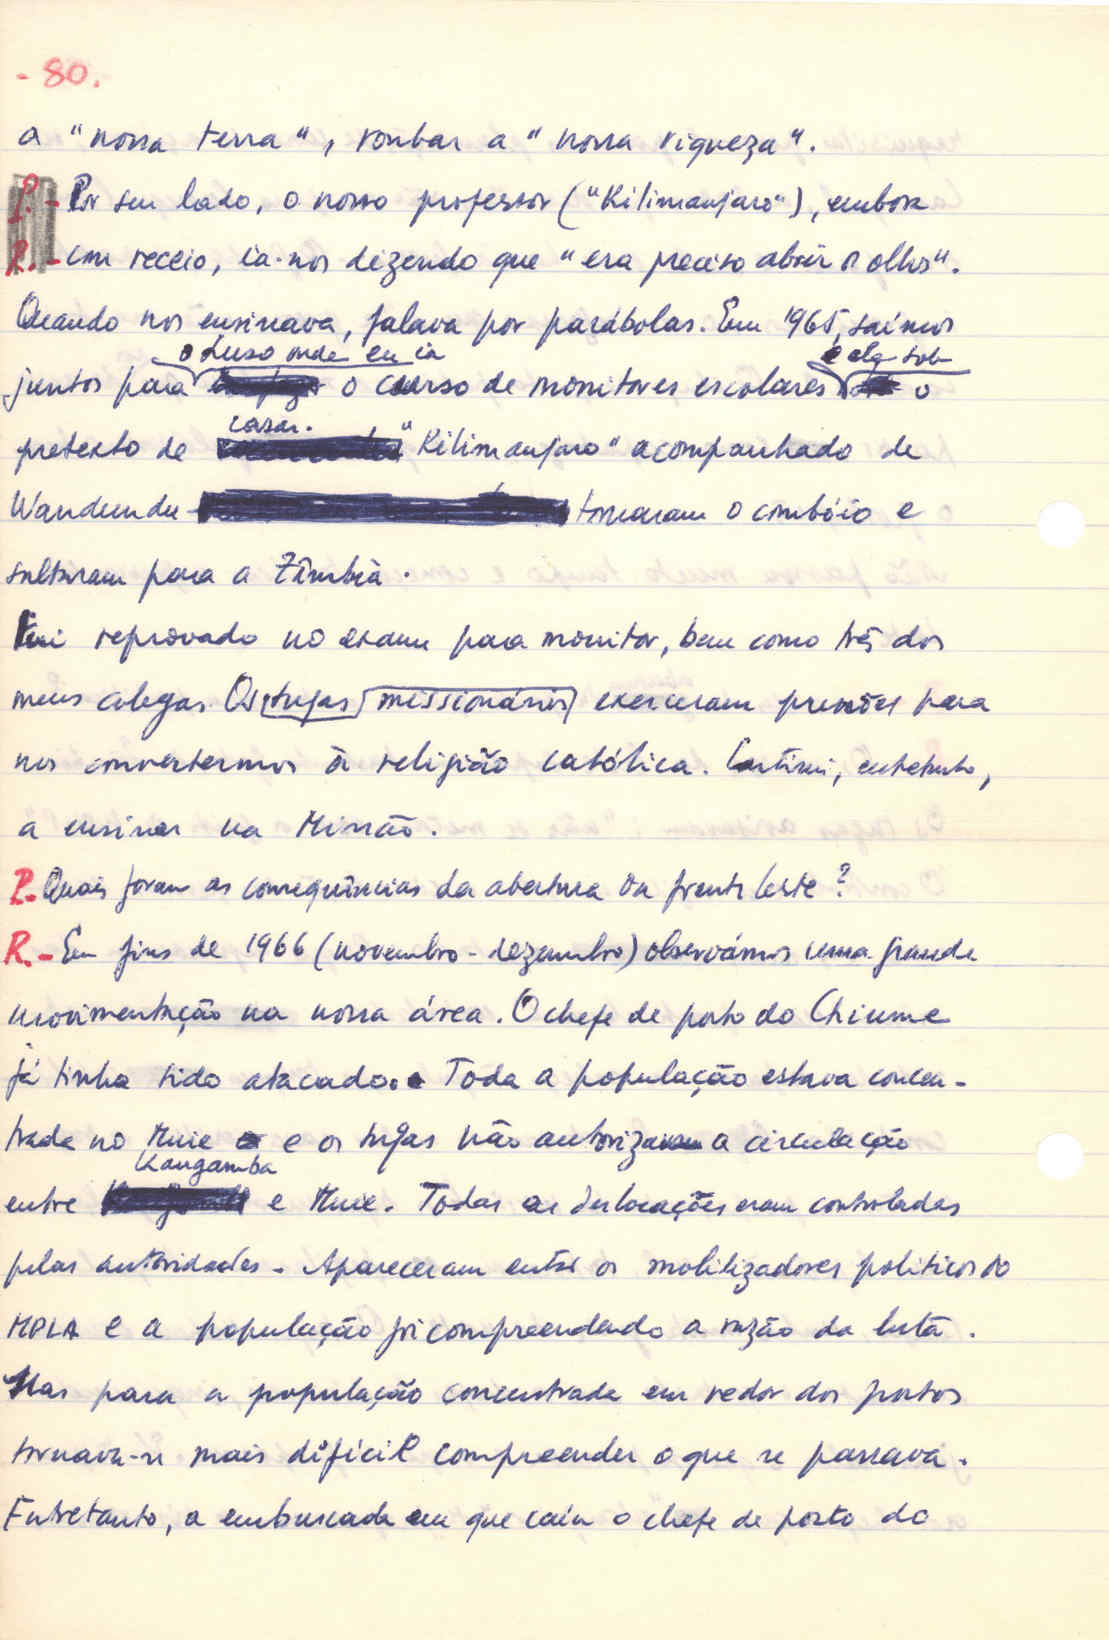 - 80.
a "nossa terra", roubar a "nossa riqueza".
P. - Por seu lado, o nosso professor ("Kilimanjaro"), embora
R. - com receio, ia-nos dizendo que "era preciso abrir os olhos".
Quando nos ensinava, falava por parábolas. Em 1965, saímos
o Luso onde eu ia e ele sob
juntos para o curso de monitores escolares o
casar.
pretexto de "Kilimanjaro" acompanhado de
Wandundu tomaram o combóio e
saltaram para a Zâmbia.
Fui reprovado no exame para monitor, bem como três dos
meus colegas. Os tugas missionários exerceram pressões para
nos convertermos à religião católica. Continuei, entretanto,
a ensinar na Missão.
P. Quais foram as consequências da abertura da frente leste?
R. - Em fins de 1966 (novembro - dezembro) observámos uma grande
movimentação na nossa área. O chefe de posto do Chiume
já tinha sido atacado. Toda a população estava concen-
trada no Muie e os tugas não autorizavam a circulação
Kangamba
entre e Muie. Todas as deslocações eram controladas
pelas autoridades. Apareceram então os mobilizadores políticos do
MPLA e a população foi compreendendo a razão da luta.
Mas para a população concentrada em redor dos postos
tornava-se mais difícil compreender o que se passava.
Entretanto, a emboscada em que caiu o chefe de posto do